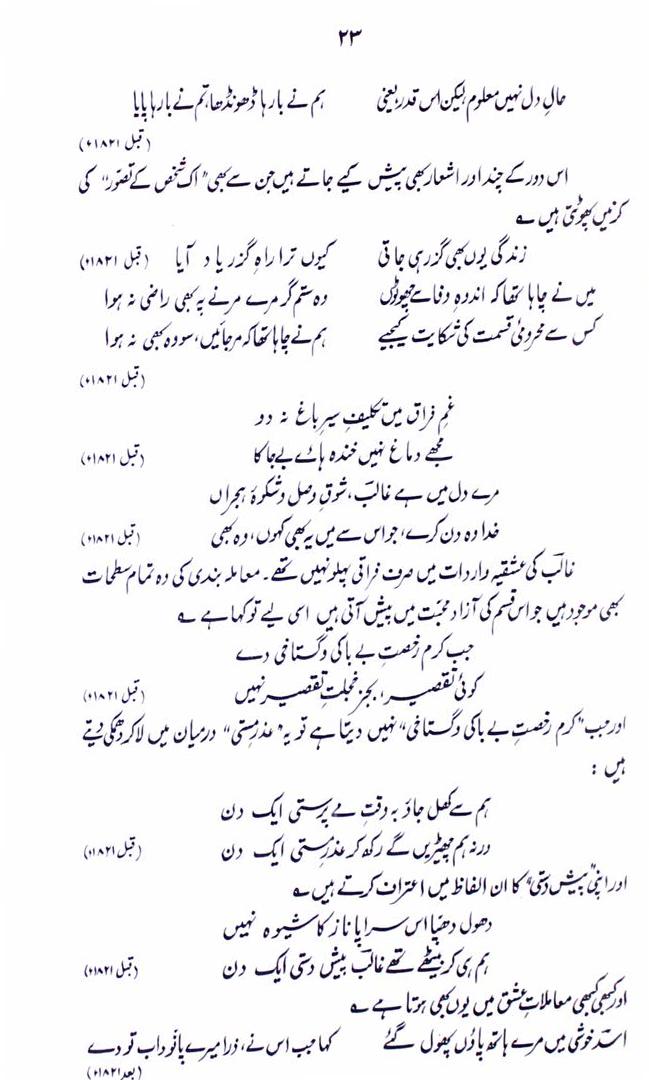 ۲۳
حالِ دل نہیں معلوم لیکن اس قدر یعنی ہم نے بارہا ڈھونڈھا، تم نے بارہا پایا
(قبل ۱۸۲۱ء)
اس دور کے چند اور اشعار بھی پیش کیے جاتے ہیں جن سے بھی "اک شخص کے تصوّر" کی
کرنیں پھوٹتی ہیں ؎
زندگی یوں بھی گزر ہی جاتی کیوں ترا راہ گزر یاد آیا (قبل ۱۸۲۱ء)
میں نے چاہا تھا کہ اندوہِ وفا سے چھوٹوں وہ ستم گر مرے مرنے پہ بھی راضی نہ ہوا
کس سے محرومیٔ قسمت کی شکایت کیجیے ہم نے چاہا تھا کہ مر جائیں، سو وہ بھی نہ ہوا
(قبل ۱۸۲۱ء)
غمِ فراق میں تکلیفِ سیرِ باغ نہ دو
مجھے دماغ نہیں خندہ ہائے بے جا کا (قبل ۱۸۲۱ء)
مرے دل میں ہے غالبؔ، شوقِ وصل و شکوۂ ہجراں
خدا وہ دن کرے، جو اس سے میں یہ بھی کہوں، وہ بھی (قبل ۱۸۲۱ء)
غالبؔ کی عشقیہ واردات میں صرف فراقی پہلو نہیں تھے۔ معاملہ بندی کی وہ تمام سطحات
بھی موجود ہیں جو اس قسم کی آزاد محبّت میں پیش آتی ہیں اسی لیے تو کہا ہے ؎
جب کرم رخصتِ بے باکی و گستاخی دے
کوئی تقصیر، بجز خجلتِ تقصیر نہیں (قبل ۱۸۲۱ء)
اور جب "کرم رخصتِ بے باکی و گستاخی" نہیں دیتا ہے تو یہ "عذرِ مستی" درمیان میں لا کر دھمکی دیتے
ہیں :
ہم سے کھل جاؤ بہ وقتِ مے پرستی ایک دن
ورنہ ہم چھیڑیں گے رکھ کر عذرِ مستی ایک دن (قبل ۱۸۲۱ء)
اور اپنی "پیش دستی" کا ان الفاظ میں اعتراف کرتے ہیں ؎
دھول دھپّا اس سراپا ناز کا شیوہ نہیں
ہم ہی کر بیٹھے تھے غالبؔ پیش دستی ایک دن (قبل ۱۸۲۱ء)
اور کبھی کبھی معاملاتِ عشق میں یوں بھی ہوتا ہے ؎
اسدؔ خوشی میں مرے ہاتھ پاؤں پھول گئے کہا جب اس نے، ذرا میرے پانو داب تو دے
(بعد ۱۸۲۱ء)